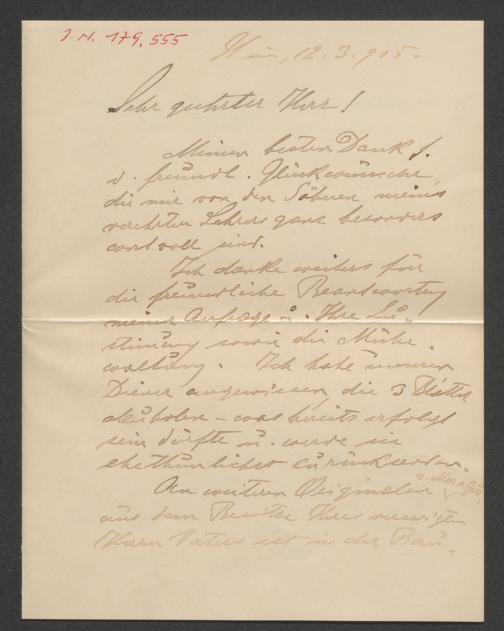 J. N. 179.555
Wien, 12. 3. 905.
Sehr geehrter Herr!
Meinen besten Dank f.
d. freundl. Glückwünsche,
die mir von den Söhnen meines
verehrten Lehrers ganz besonders
wertvoll sind.
Ich danke weiters für
die freundliche Beantwortung
meiner Anfrage u. Ihre Zu-
stimmung sowie die Mühe-
waltung. Ich habe unseren
Diener angewiesen, die 3 Blätter
abzuholen – was bereits erfolgt
sein dürfte u. werde sie
ehethunlichst zurücksenden.
An weiteren Originalen
aus dem Besitze Ihres verewigten
Herrn Vaters ist in der Bau-